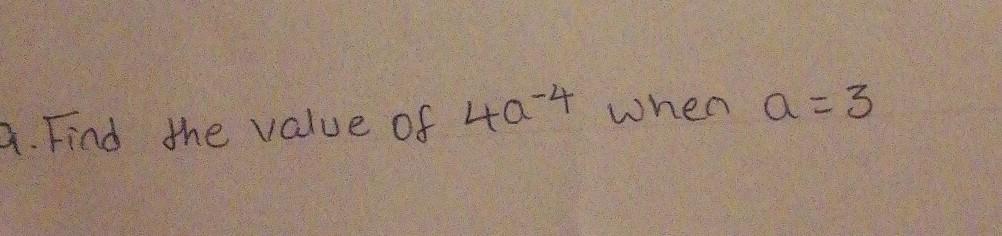 a. Find the value of 4a⁻⁴ when a = 3